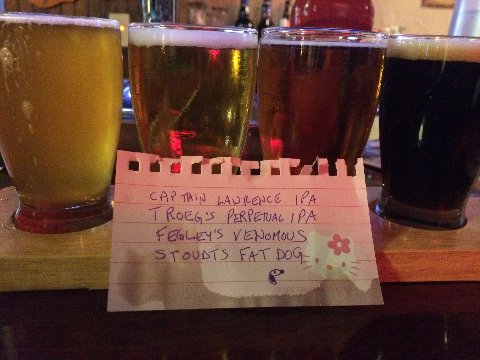 CAPTAIN LAWRENCE IPA
TROEG'S PERPETUAL IPA
FEGLEY'S VENOMOUS
STOUDT'S FAT DOG